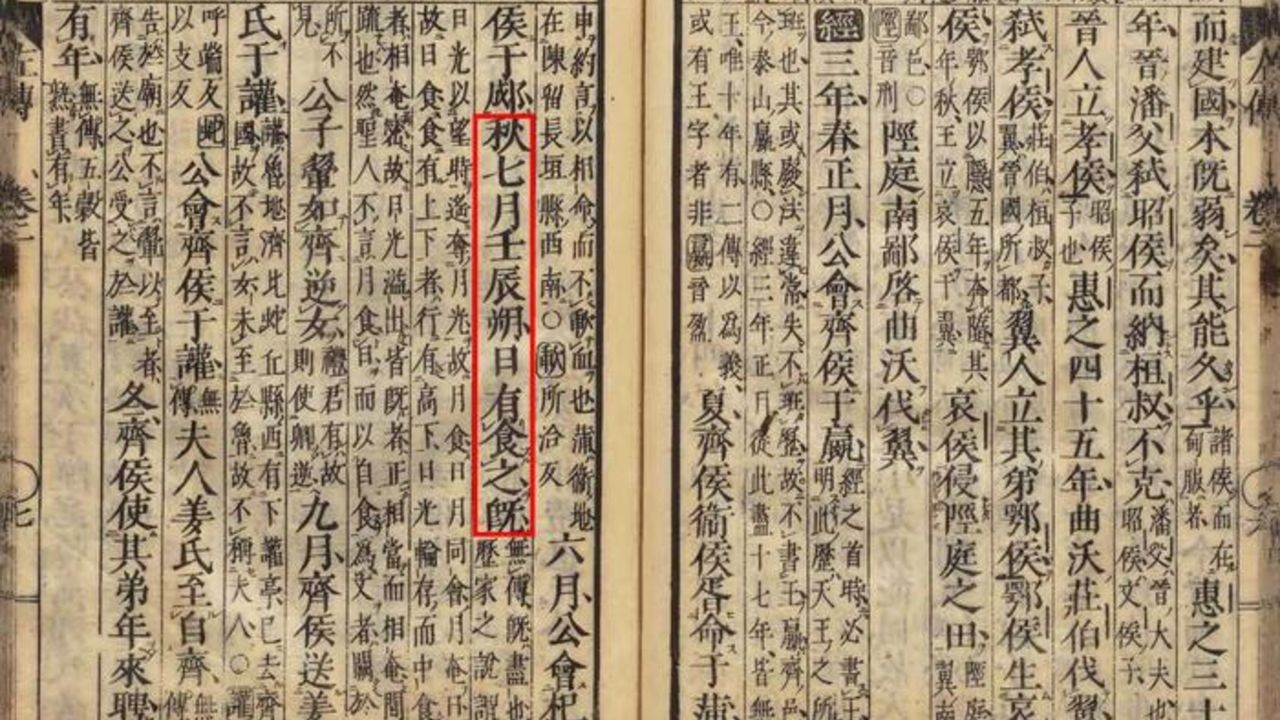 而建國本既弱矣其能久乎諸侯而在甸服者惠之三十
年晉潘父弑昭侯而納桓叔不克潘父晉大夫也昭侯文侯子
晉人立孝侯昭侯子也惠之四十五年曲沃莊伯伐翼
弑孝侯莊伯桓叔子翼晉國所都翼人立其弟鄂侯鄂侯生哀
侯鄂侯以隱五年奔隨其年秋王立哀侯于翼哀侯侵陘庭之田陘庭翼南
鄙邑○陘音刑陘庭南鄙啓曲沃伐翼
經三年春正月公會齊侯于嬴經之首時必書王明此歷天王之所
班也其或廢法違常失不班歷故不書王嬴齊邑今泰山嬴縣○經三年正月從此盡十七年皆無
王唯十年有二傳以為義或有王字者非嬴音盈夏齊侯衛侯胥命于蒲
申約言以相命而不歃血也蒲衛地在陳留長垣縣西南○歃所洽反六月公會杞
侯于郕秋七月壬辰朔日有食之既無傳既盡也歷家之說謂
日光以望時遙奪月光故月食日月同會月奄日故日食食有上下者行有高下日光輪存而中食
者相奄密故日光溢出皆既者正相當而相奄間疏也然聖人不言月食日而以自食為文者闕於
所不見公子翬如齊逆女禮君有故則使卿逆九月齊侯送姜
氏于讙讙魯地濟北蛇丘縣西有下讙亭已去齊國故不言女未至於魯故不稱夫人○讙
呼端反蛇以支反公會齊侯于讙無傳夫人姜氏至自齊無傳
告於廟也不言翬以至者齊侯送之公受之於讙冬齊侯使其弟年來聘
有年無傳五穀皆熟書有年
左傳 卷二